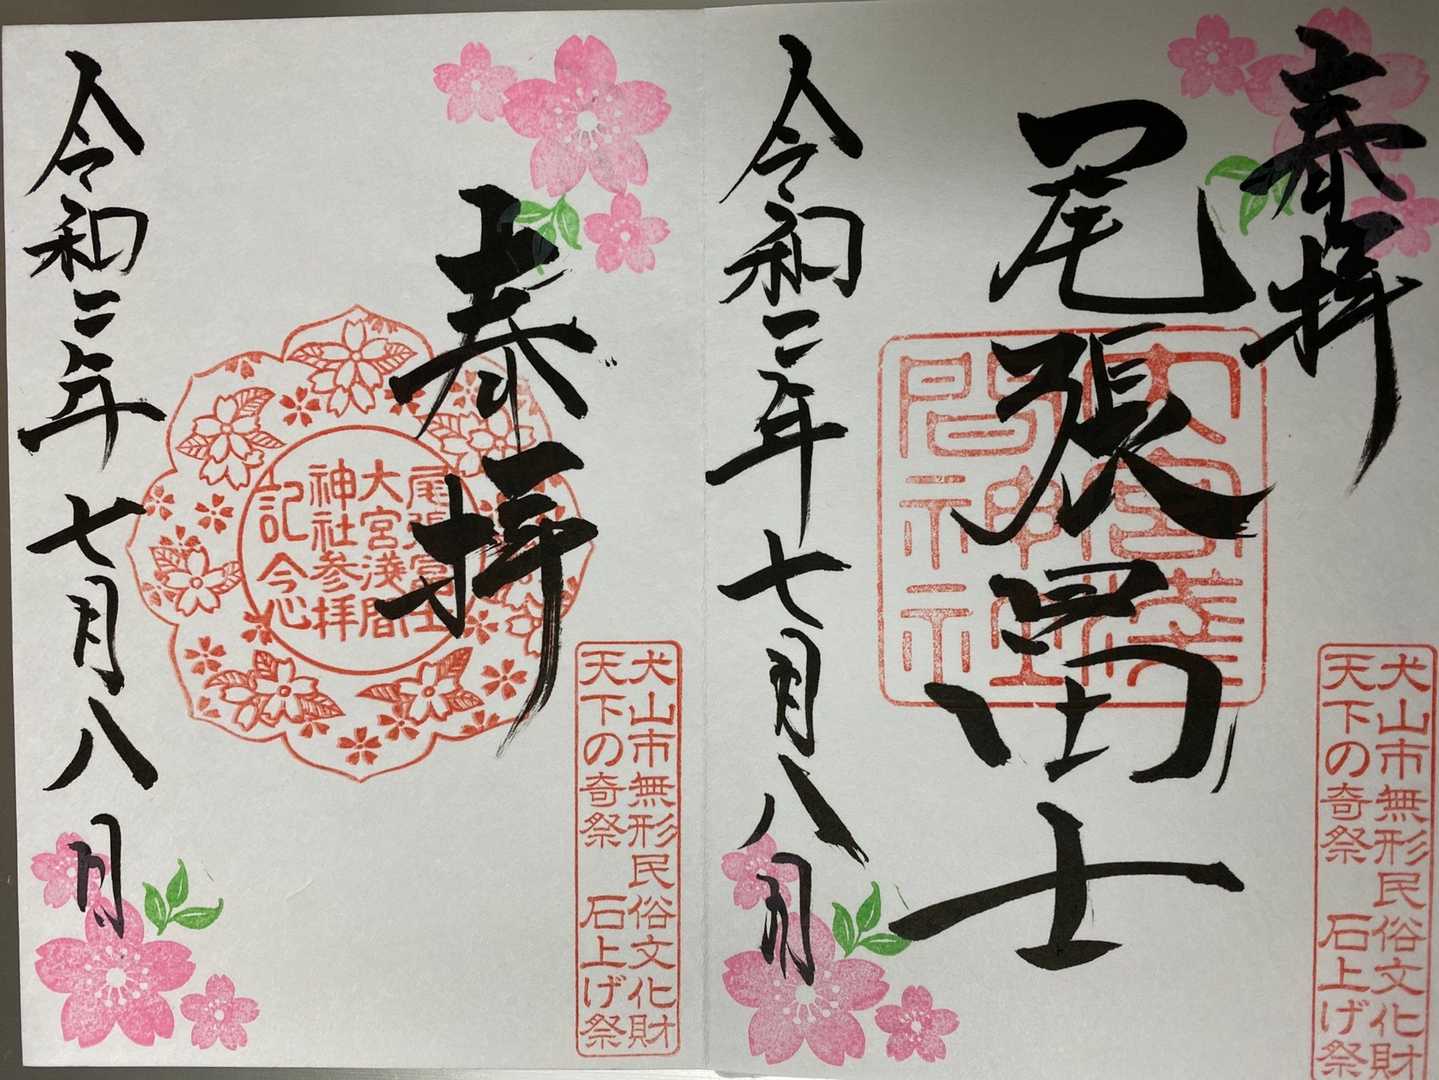 奉拝
犬山市無形民俗文化財
天下の奇祭 石上げ祭
尾張冨士
大宮淺
間神社
令和二年七月八日
奉拝
犬山市無形民俗文化財
天下の奇祭 石上げ祭
尾張冨士
大宮淺間
神社参拝
記念
令和二年七月八日